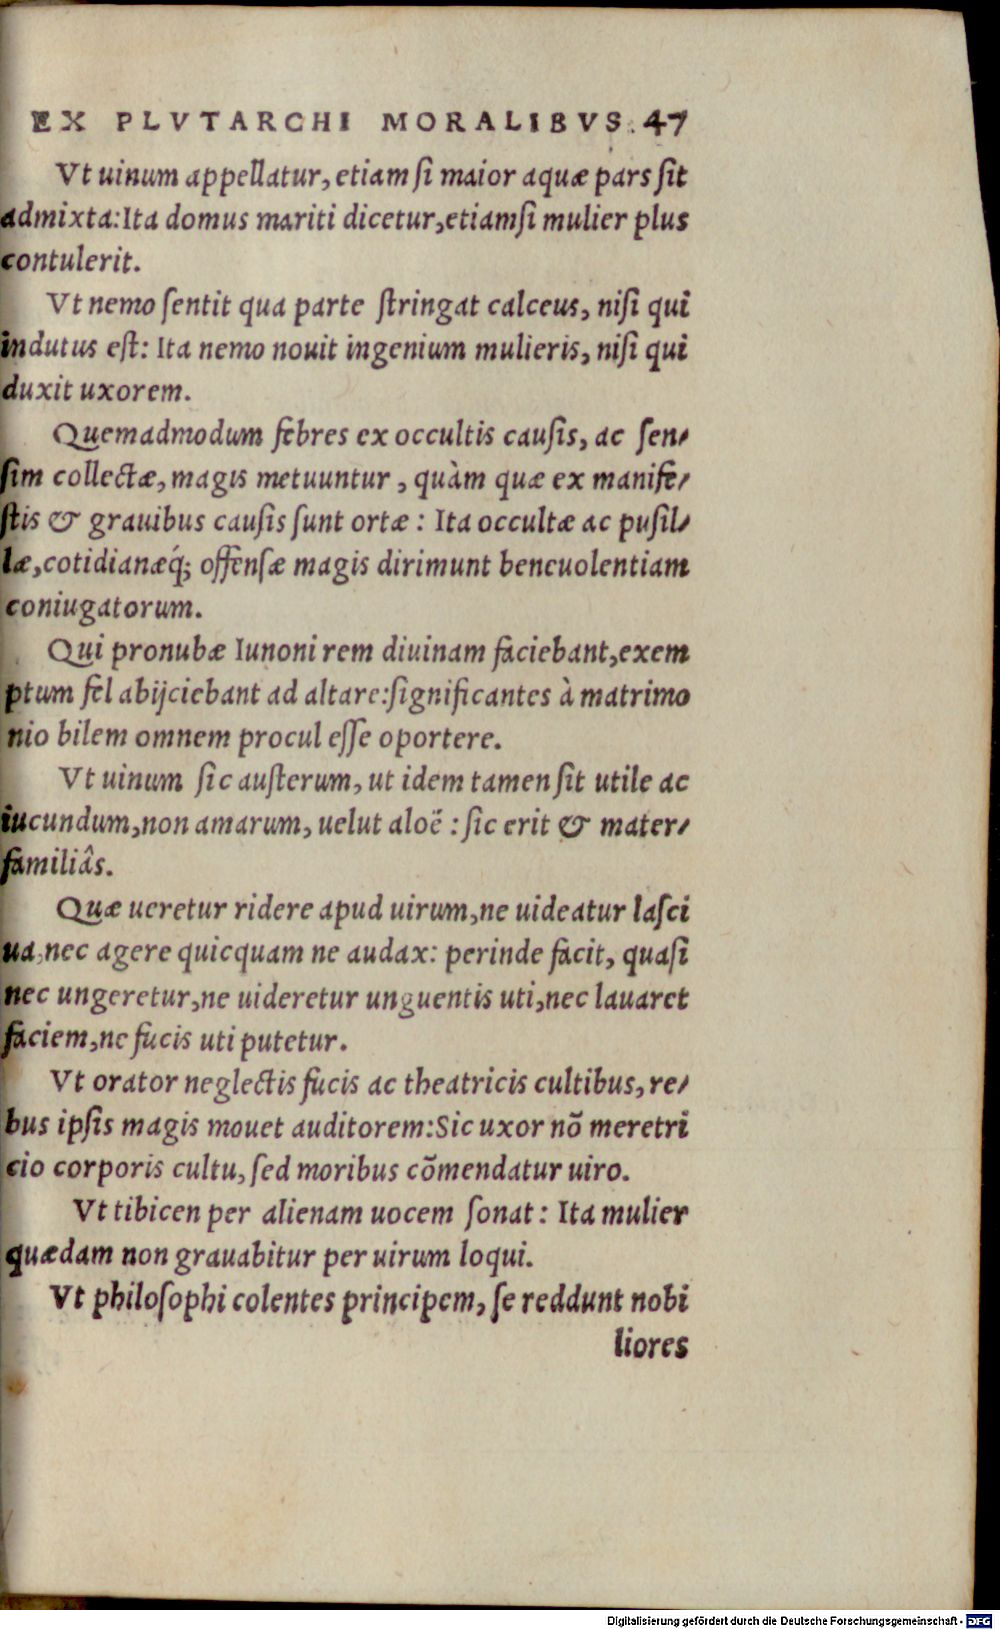 EX PLVTARCHI MORALIBVS. 47
Vt uinum appellatur, etiam si maior aquæ pars sit
admixta: Ita domus mariti dicetur, etiamsi mulier plus
contulerit.
Vt nemo sentit qua parte stringat calceus, nisi qui
indutus est: Ita nemo nouit ingenium mulieris, nisi qui
duxit uxorem.
Quemadmodum febres ex occultis causis, ac sen-
sim collectæ, magis metuuntur, quàm quæ ex manife-
stis & grauibus causis sunt ortæ: Ita occultæ ac pusil-
læ, cotidianæq́; offensæ magis dirimunt beneuolentiam
coniugatorum.
Qui pronubæ Iunoni rem diuinam faciebant, exem
ptum fel abijciebant ad altare: significantes à matrimo
nio bilem omnem procul esse oportere.
Vt uinum sic austerum, ut idem tamen sit utile ac
iucundum, non amarum, uelut aloë: sic erit & mater-
familiâs.
Quæ ueretur ridere apud uirum, ne uideatur lasci
ua, nec agere quicquam ne audax: perinde facit, quasi
nec ungeretur, ne uideretur unguentis uti, nec lauaret
faciem, ne fucis uti putetur.
Vt orator neglectis fucis ac theatricis cultibus, re-
bus ipsis magis mouet auditorem: Sic uxor nō meretri
cio corporis cultu, sed moribus cōmendatur uiro.
Vt tibicen per alienam uocem sonat: Ita mulier
quædam non grauabitur per uirum loqui.
Vt philosophi colentes principem, se reddunt nobi
liores
Digitalisierung gefördert durch die Deutsche Forschungsgemeinschaft - DFG